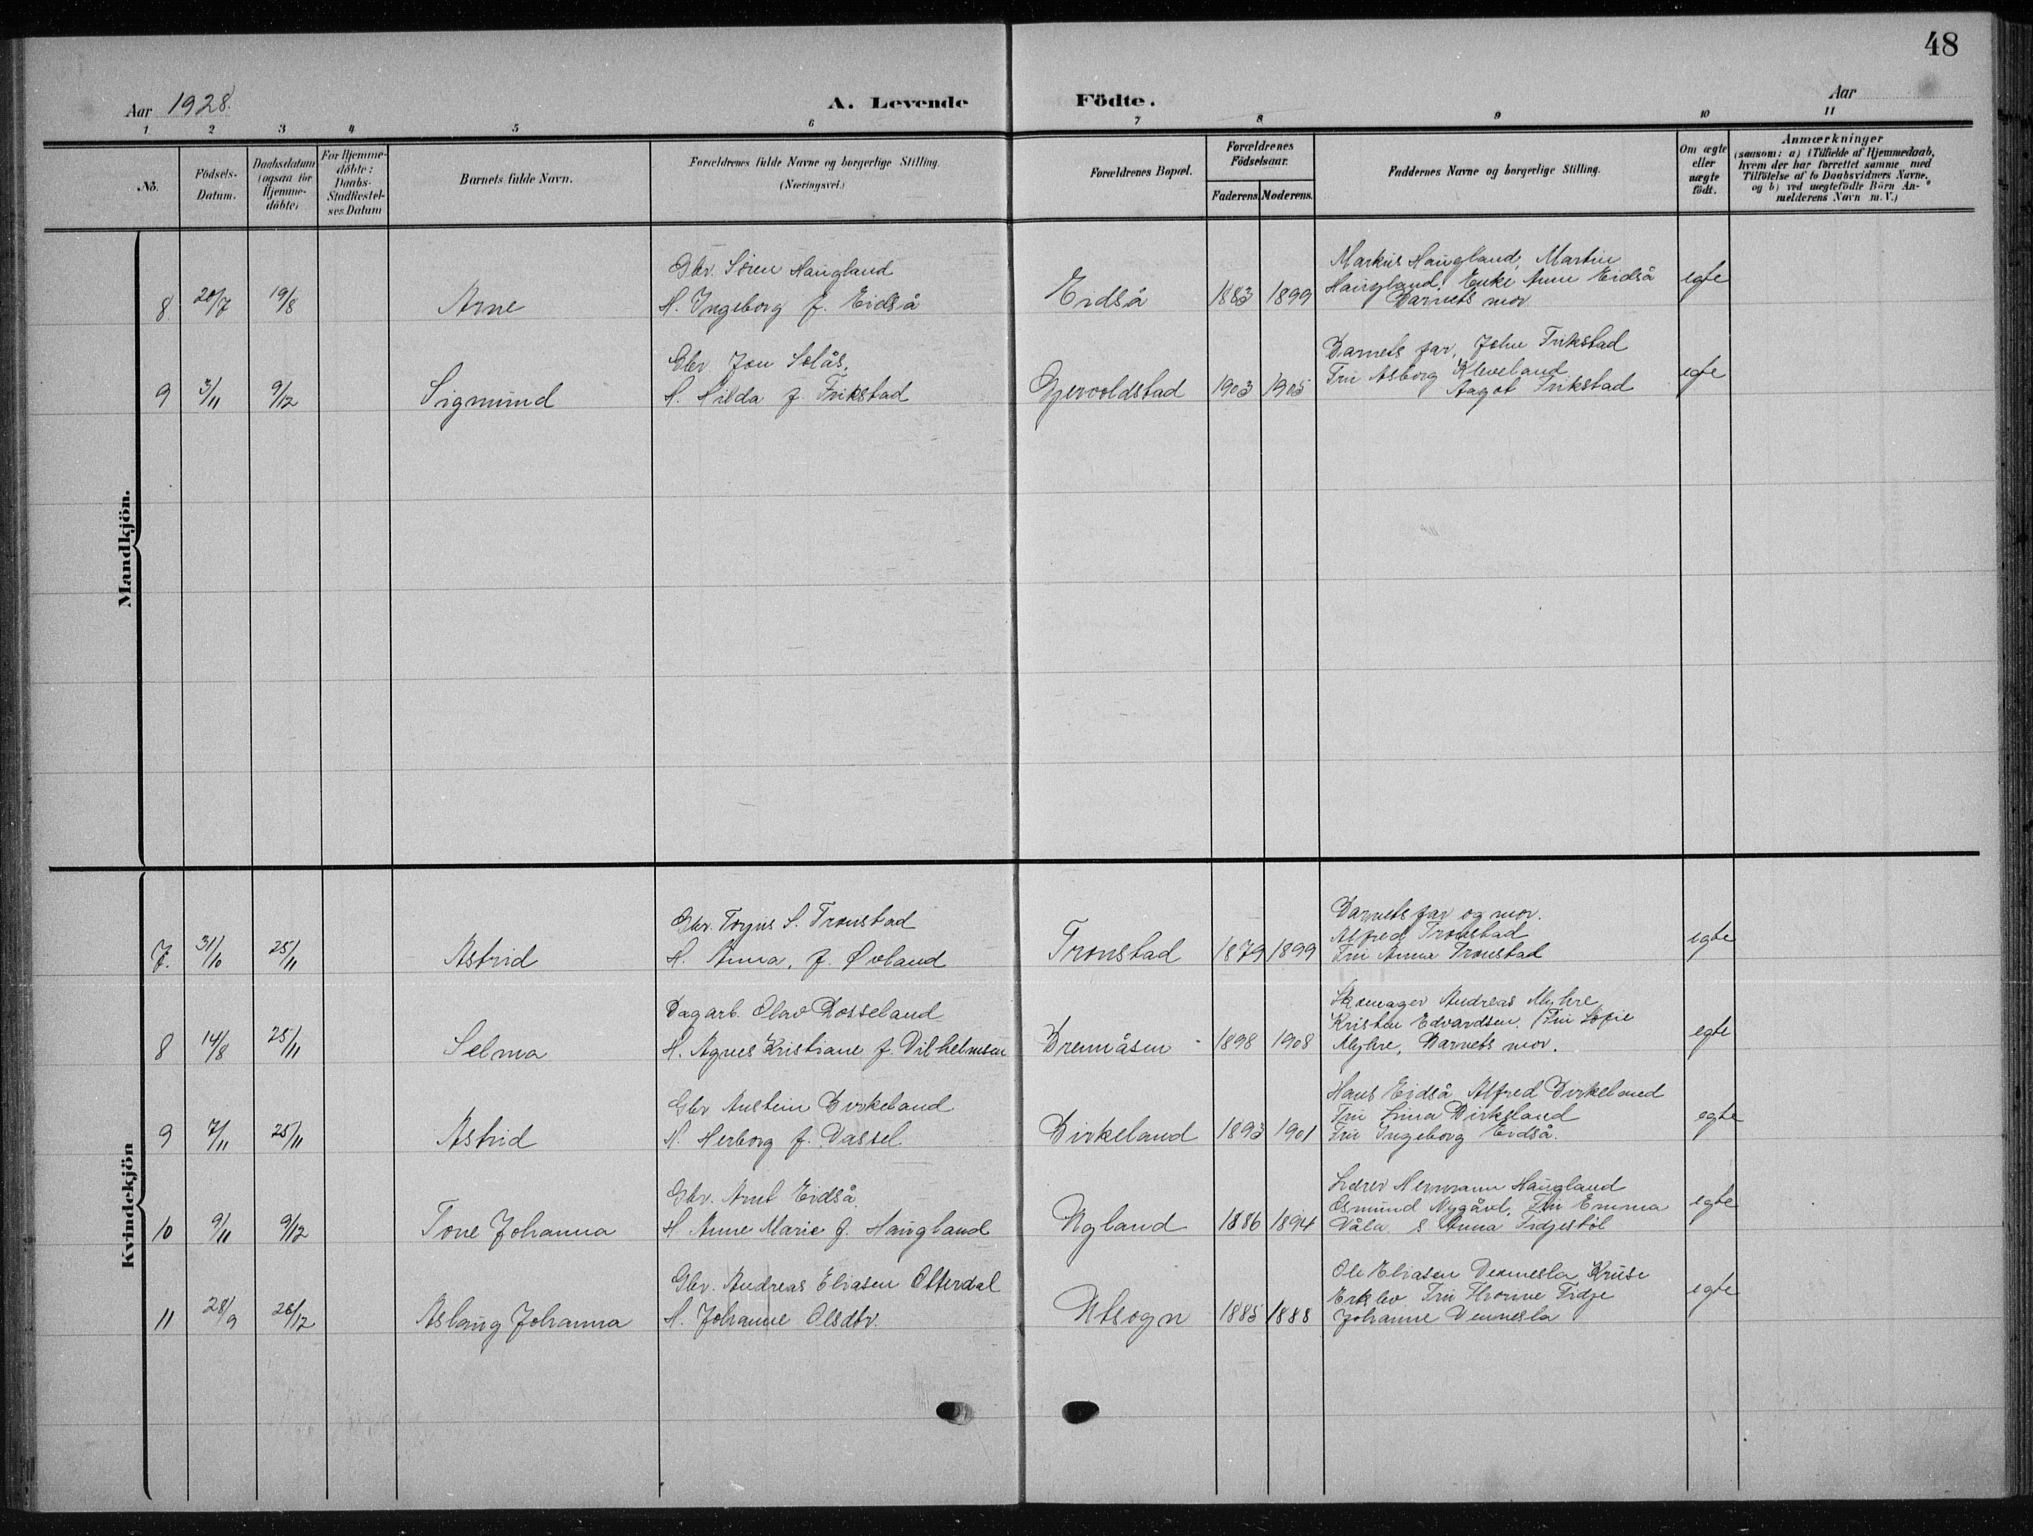 48
Aar 1928.
A. Levende Födte.
Aar
1 2 3 4 5 6 7 8 9 10 11
No.
Födsels-Datum.
Daabsdatum (ogsaa for Hjemme-döbte)
For Hjemme-döbte: Daabs-Stadfæstel-ses Datum
Barnets fulde Navn.
Forældrenes fulde Navne og borgerlige Stilling. (Næringsvei.)
Forældrenes Bopæl.
Forældrenes Födselsaar.
Faderens. Moderens.
Faddernes Navne og borgerlige Stilling.
Om ægte eller uægte födt.
Anmærkninger
(saasom: a) i Tilfælde af Hjemmedaab,
hvem der har forrettet samme, med
Tilföielse af to Daabsvidners Navne,
og b) ved uægtefödte Börn An-
melderens Navn m. V.)
Mandkjön.
Gbr. Søren Haugland
Markus Haugland, Martin
8 20/7 19/8 Arne H. Ingeborg f. Eidså Eidså 1883 1899 Haugland, Enke Anne Eidså egte
Barnets mor
Gbr Jon Solås,
Barnets far, John Frikstad
9 3/11 9/12 Sigmund H. Hilda f. Frikstad Gjervoldstad 1903 1905 Fru Asborg Kleveland egte
Aagot Frikstad
Kvindekjön
Gbr. Torjus S. Tronstad
Barnets far og mor.
Alfred Tronstad
7. 31/10 25/11 Astrid H. Anna, f. Øvland Tronstad 1879 1899 Fru Anna Tronstad egte
Dagarb. Olav Dosseland
Skomager Andreas Myhre,
Kristen Edvardsen, Fru Sofie
8 14/8 25/11 Selma H. Agnes Kristiane f. Vilhelmsen Bremåsen 1898 1908 Myhre, Barnets mor. egte
Gbr Austein Birkeland
Hans Eidså, Alfred Birkeland
Fru Lina Birkeland
9 7/11 25/11 Astrid H. Herborg f. Vassel Birkeland 1893 1901 Fru Ingeborg Eidså. egte
Gbr. Arnt Eidså
Lærer Hermann Haugland
Osmund Nygård, Fru Emma
10 9/11 9/12 Tone Johanna H Anne Marie f. Haugland Ugland 1886 1894 Våla & Anna Fidgestøl egte
Gbr. Andreas Eliasen Otterdal
Ole Eliasen Vennesla Kruse
11 28/9 26/12 Aslaug Johanna H. Johanne Olsdtr. Utsogn 1885 1888 Fru Fidje egte
Johanne Vennesla